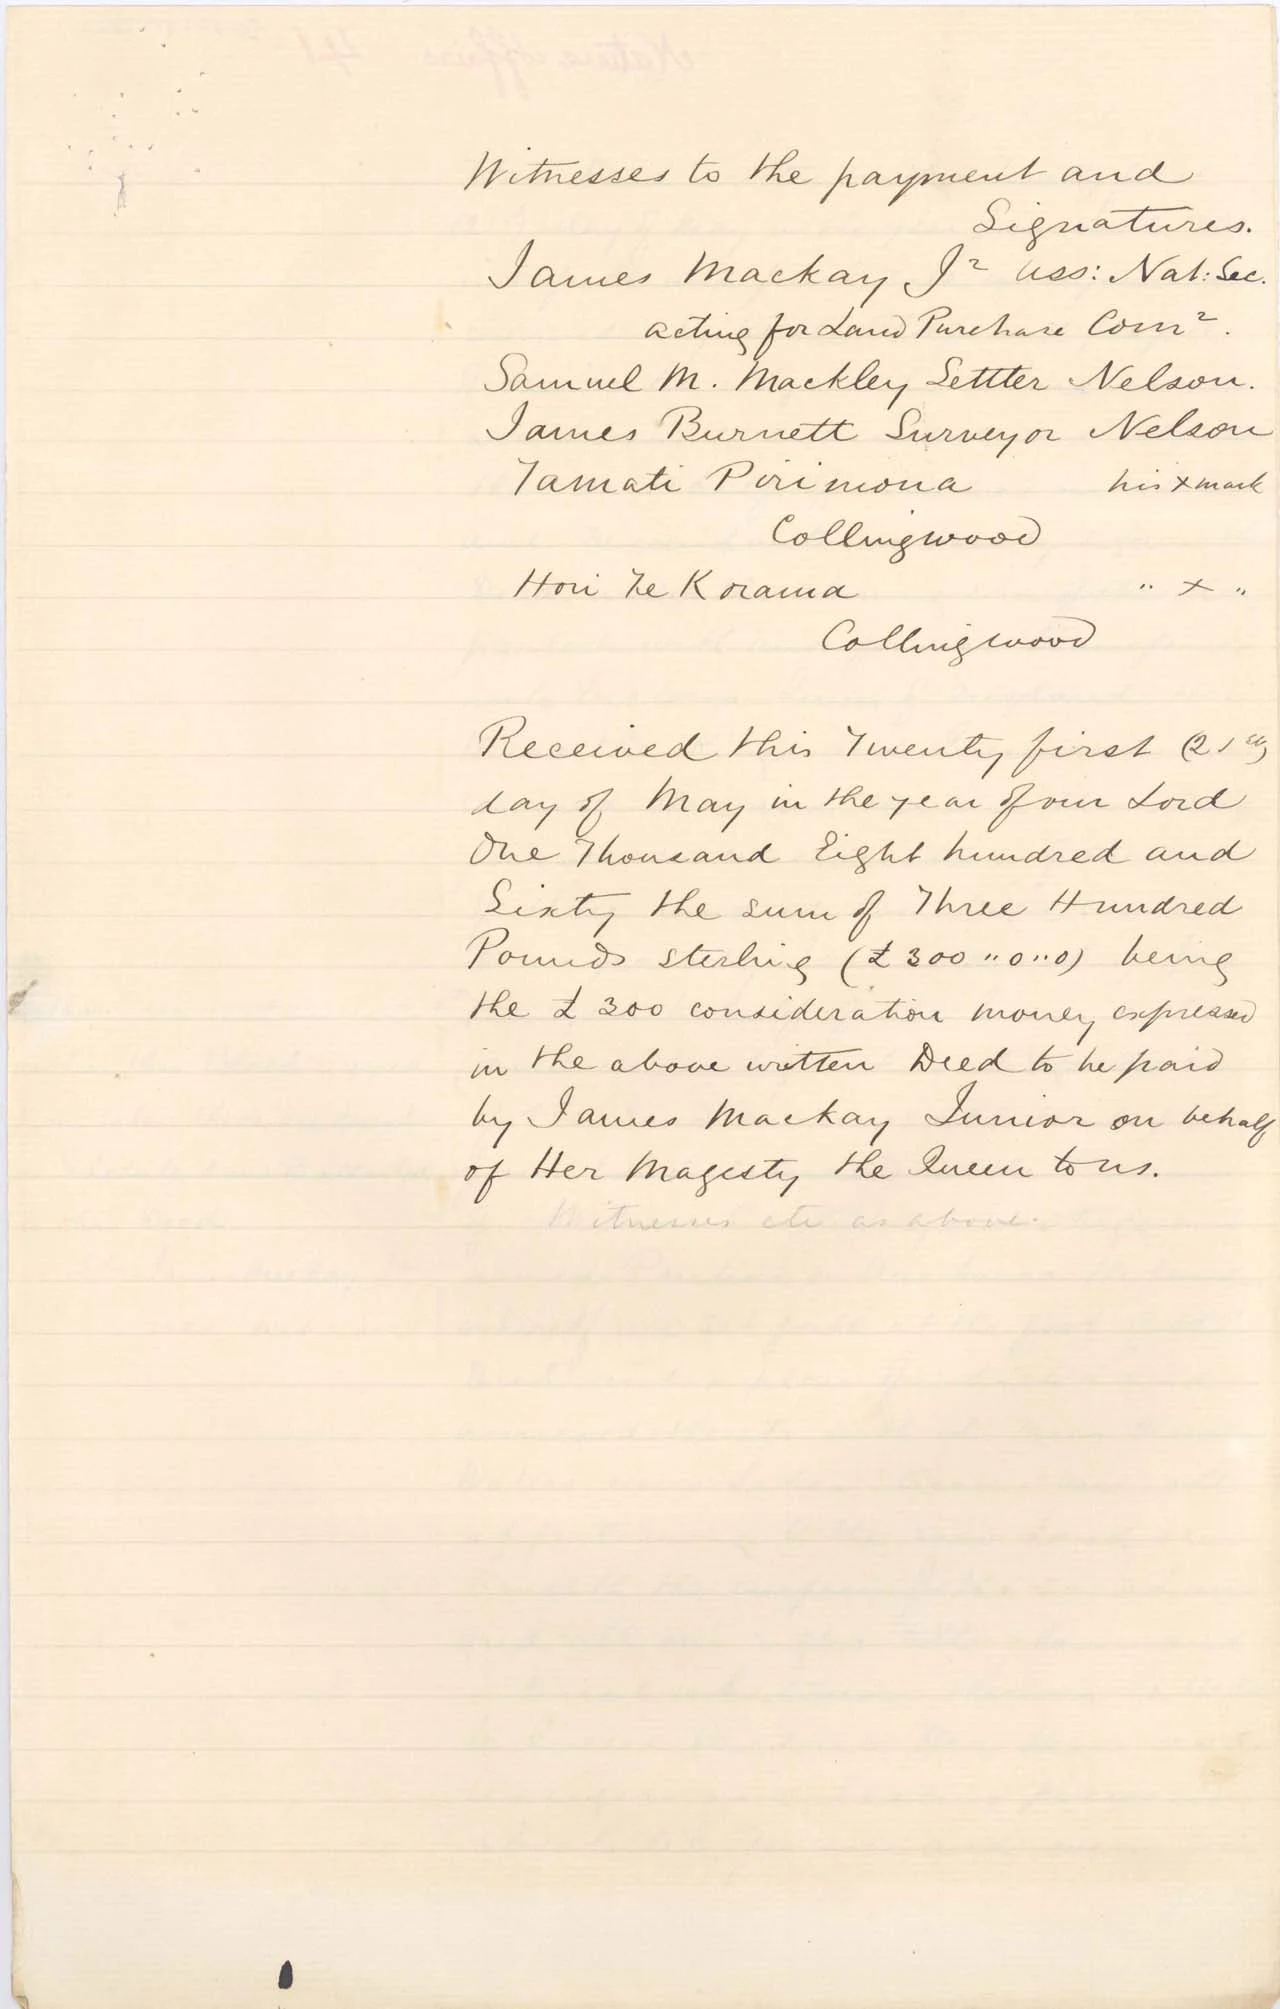 Witnesses to the payment and
Signatures.
James Mackay Jr Ass: Nat: Sec.
acting for Land Purchase Comr.
Samuel M. Mackley Settler Nelson.
James Burnett Surveyor Nelson
Tamati Pirimona his x mark
Collingwood
Hori Te Korama " x "
Collingwood
Received this Twenty first (21st)
day of May in the year of our Lord
One Thousand Eight hundred and
Sixty the sum of Three Hundred
Pounds sterling (£300"0"0) being
the £300 consideration money expressed
in the above written Deed to be paid
by James Mackay Junior on behalf
of Her Magesty the Queen to us.
Witnesses etc as above.